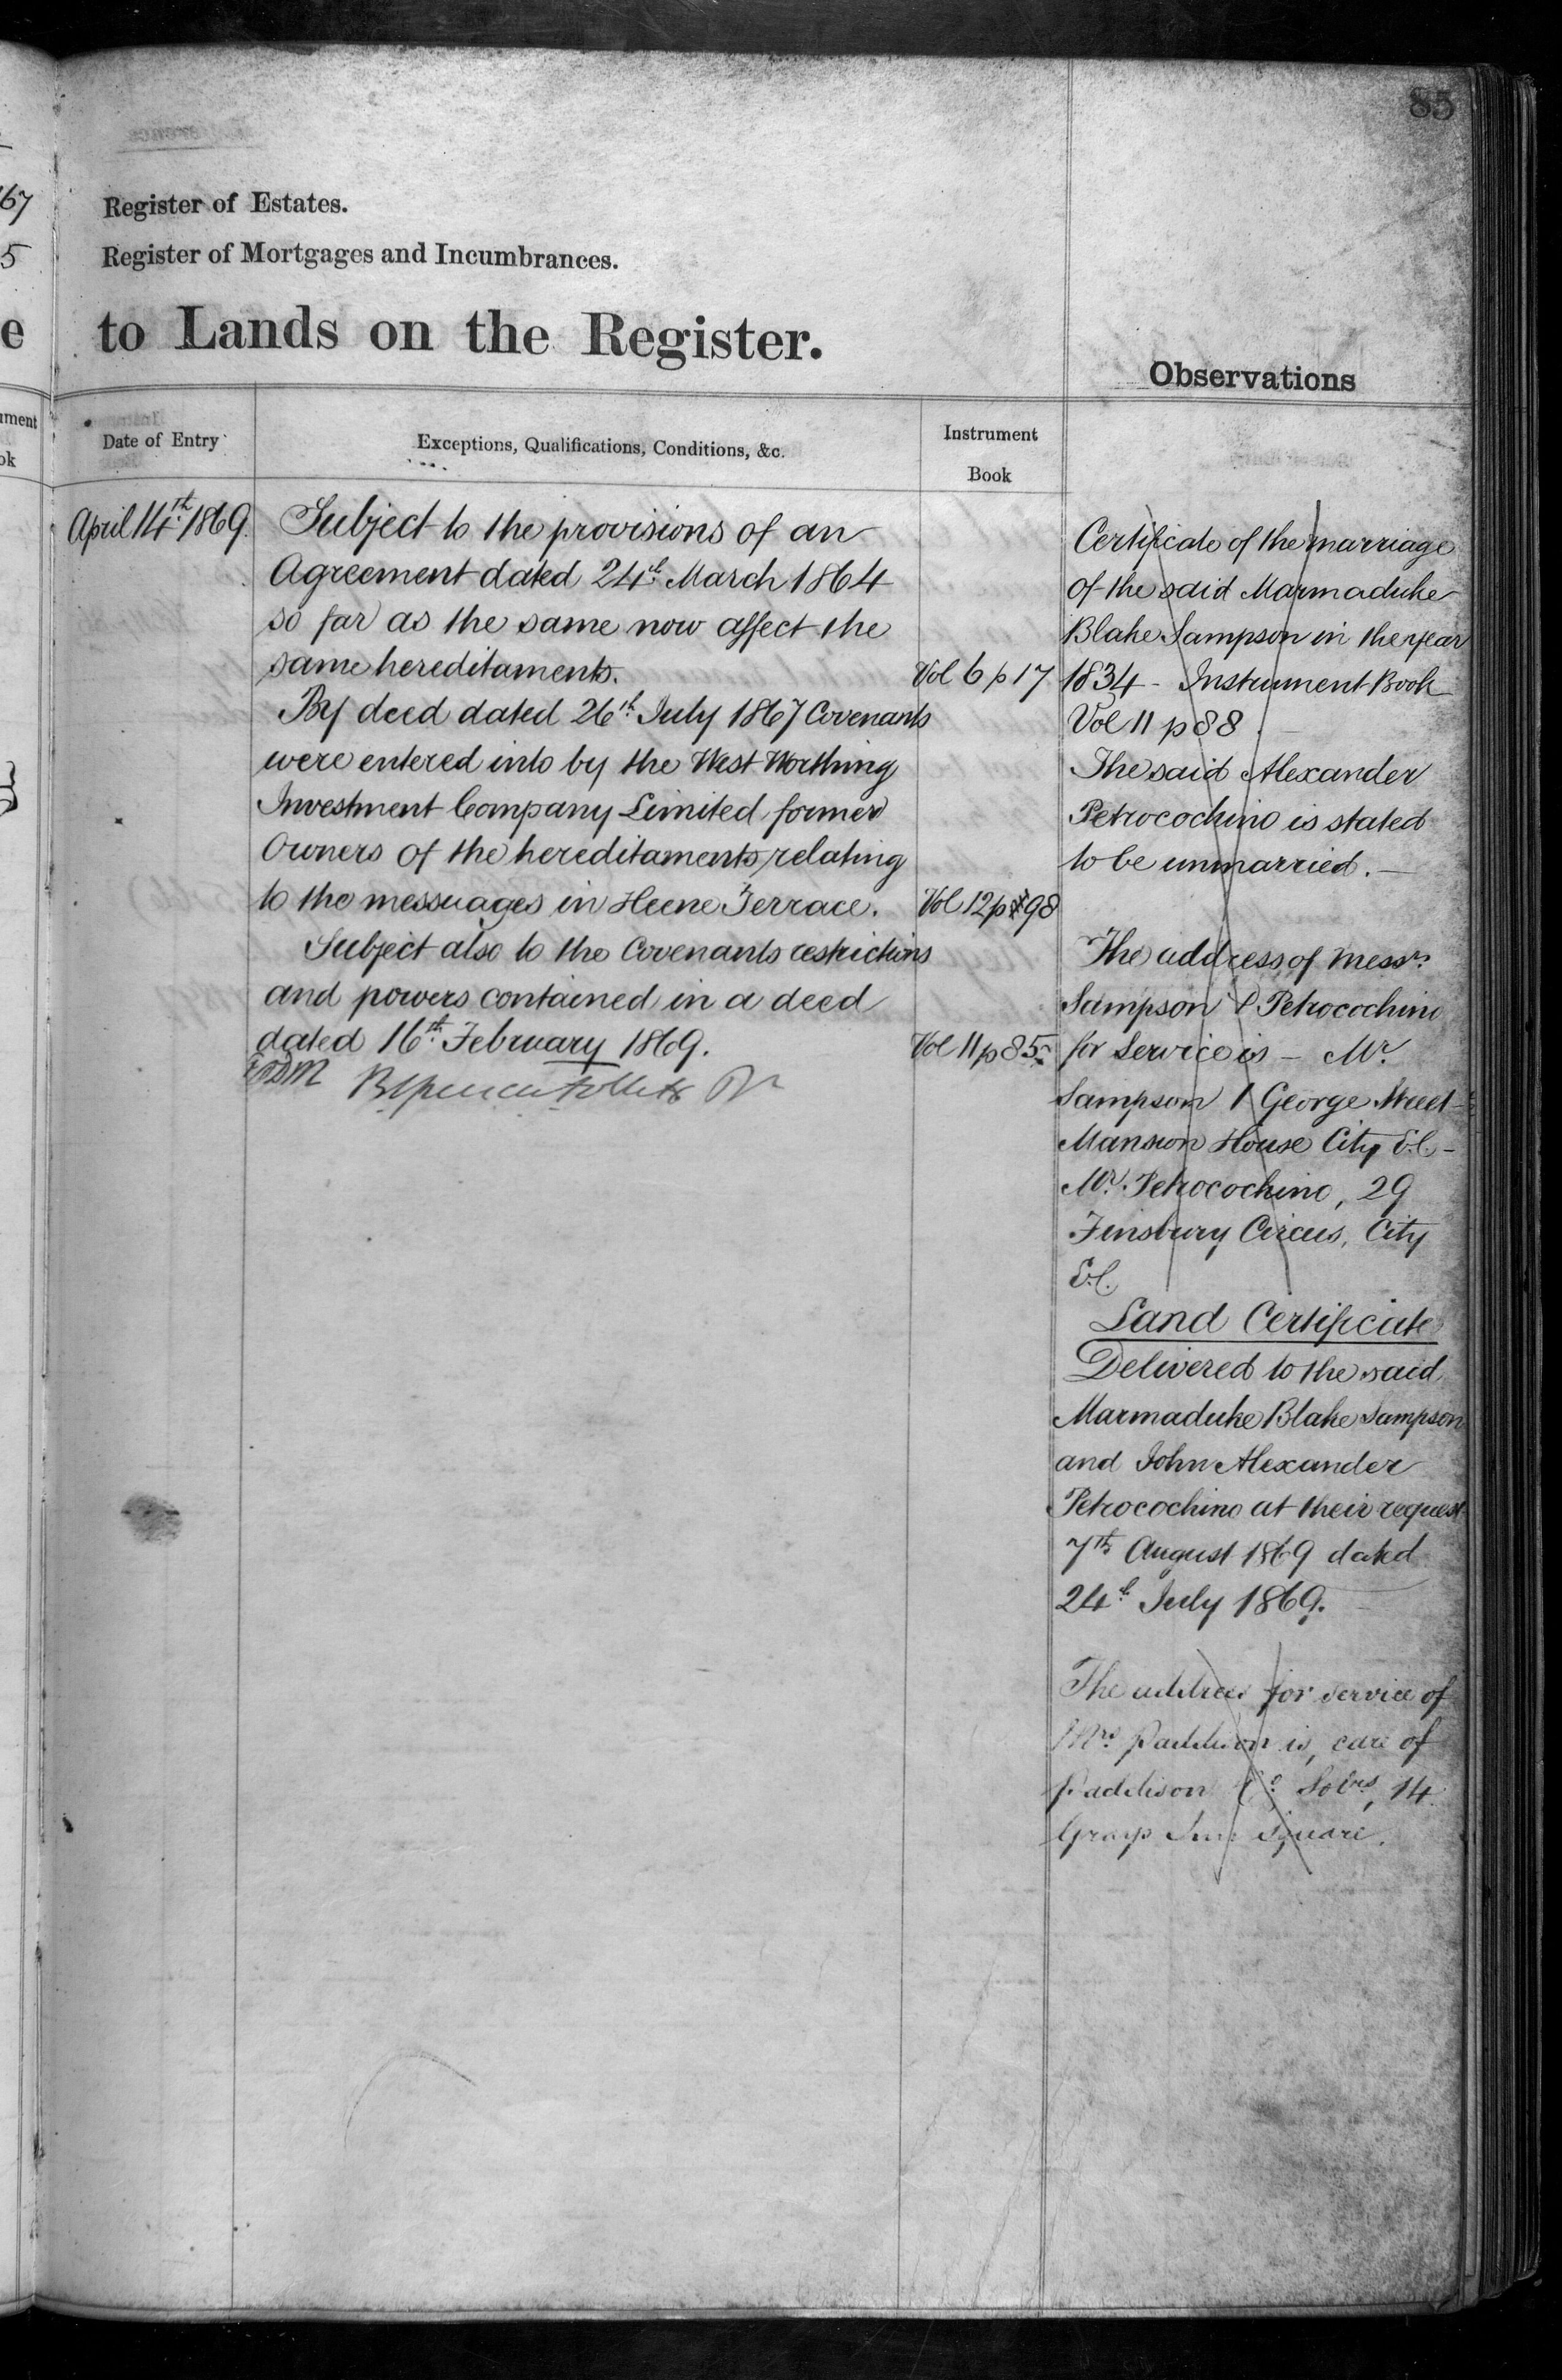 85
67
5
e
Register of Estates.
Register of Mortgages and Incumbrances.
to Lands on the Register.
Observations
ument
ok
Date of Entry
Exceptions, Qualifications, Conditions, &c.
Instrument
Book
April 14th 1869.
Subject to the provisions of an
Agreement dated 24th March 1864
so far as the same now affect the
same hereditaments.
Vol 6 p 17
By deed dated 26th July 1867 Covenants
were entered into by the West Worthing
Investment Company Limited former
Owners of the hereditaments relating
to the messuages in Heene Terrace.
Vol 12 p 98
Subject also to the Covenants restrictions
and powers contained in a deed
dated 16th February 1869.
Vol 11 p 85
Certificate of the marriage
of the said Marmaduke
Blake Sampson in the year
1834 - Instrument Book
Vol 11 p 88.
The said Alexander
Petrocochino is stated
to be unmarried. —
The address of Messrs
Sampson & Petrocochino
for Service is - Mr.
Sampson 1 George Street
Mansion House City E.C. -
Mr. Petrocochino, 29
Finsbury Circus, City
E.C.
Land Certificate
Delivered to the said
Marmaduke Blake Sampson
and John Alexander
Petrocochino at their request
7th August 1869 dated
24th July 1869.
The address for service of
Mrs. Paddison is, care of
Paddison & Co Solrs, 14
Grays Inn Square.